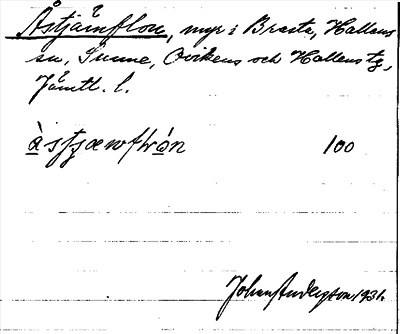 Åstjärnflon, myr i Brasta, Hallens
sn, Sunne, Ovikens och Hallens tg,
Jämtl. l.
àsṭṣæwflràn 100
Johan Anderson 1931.